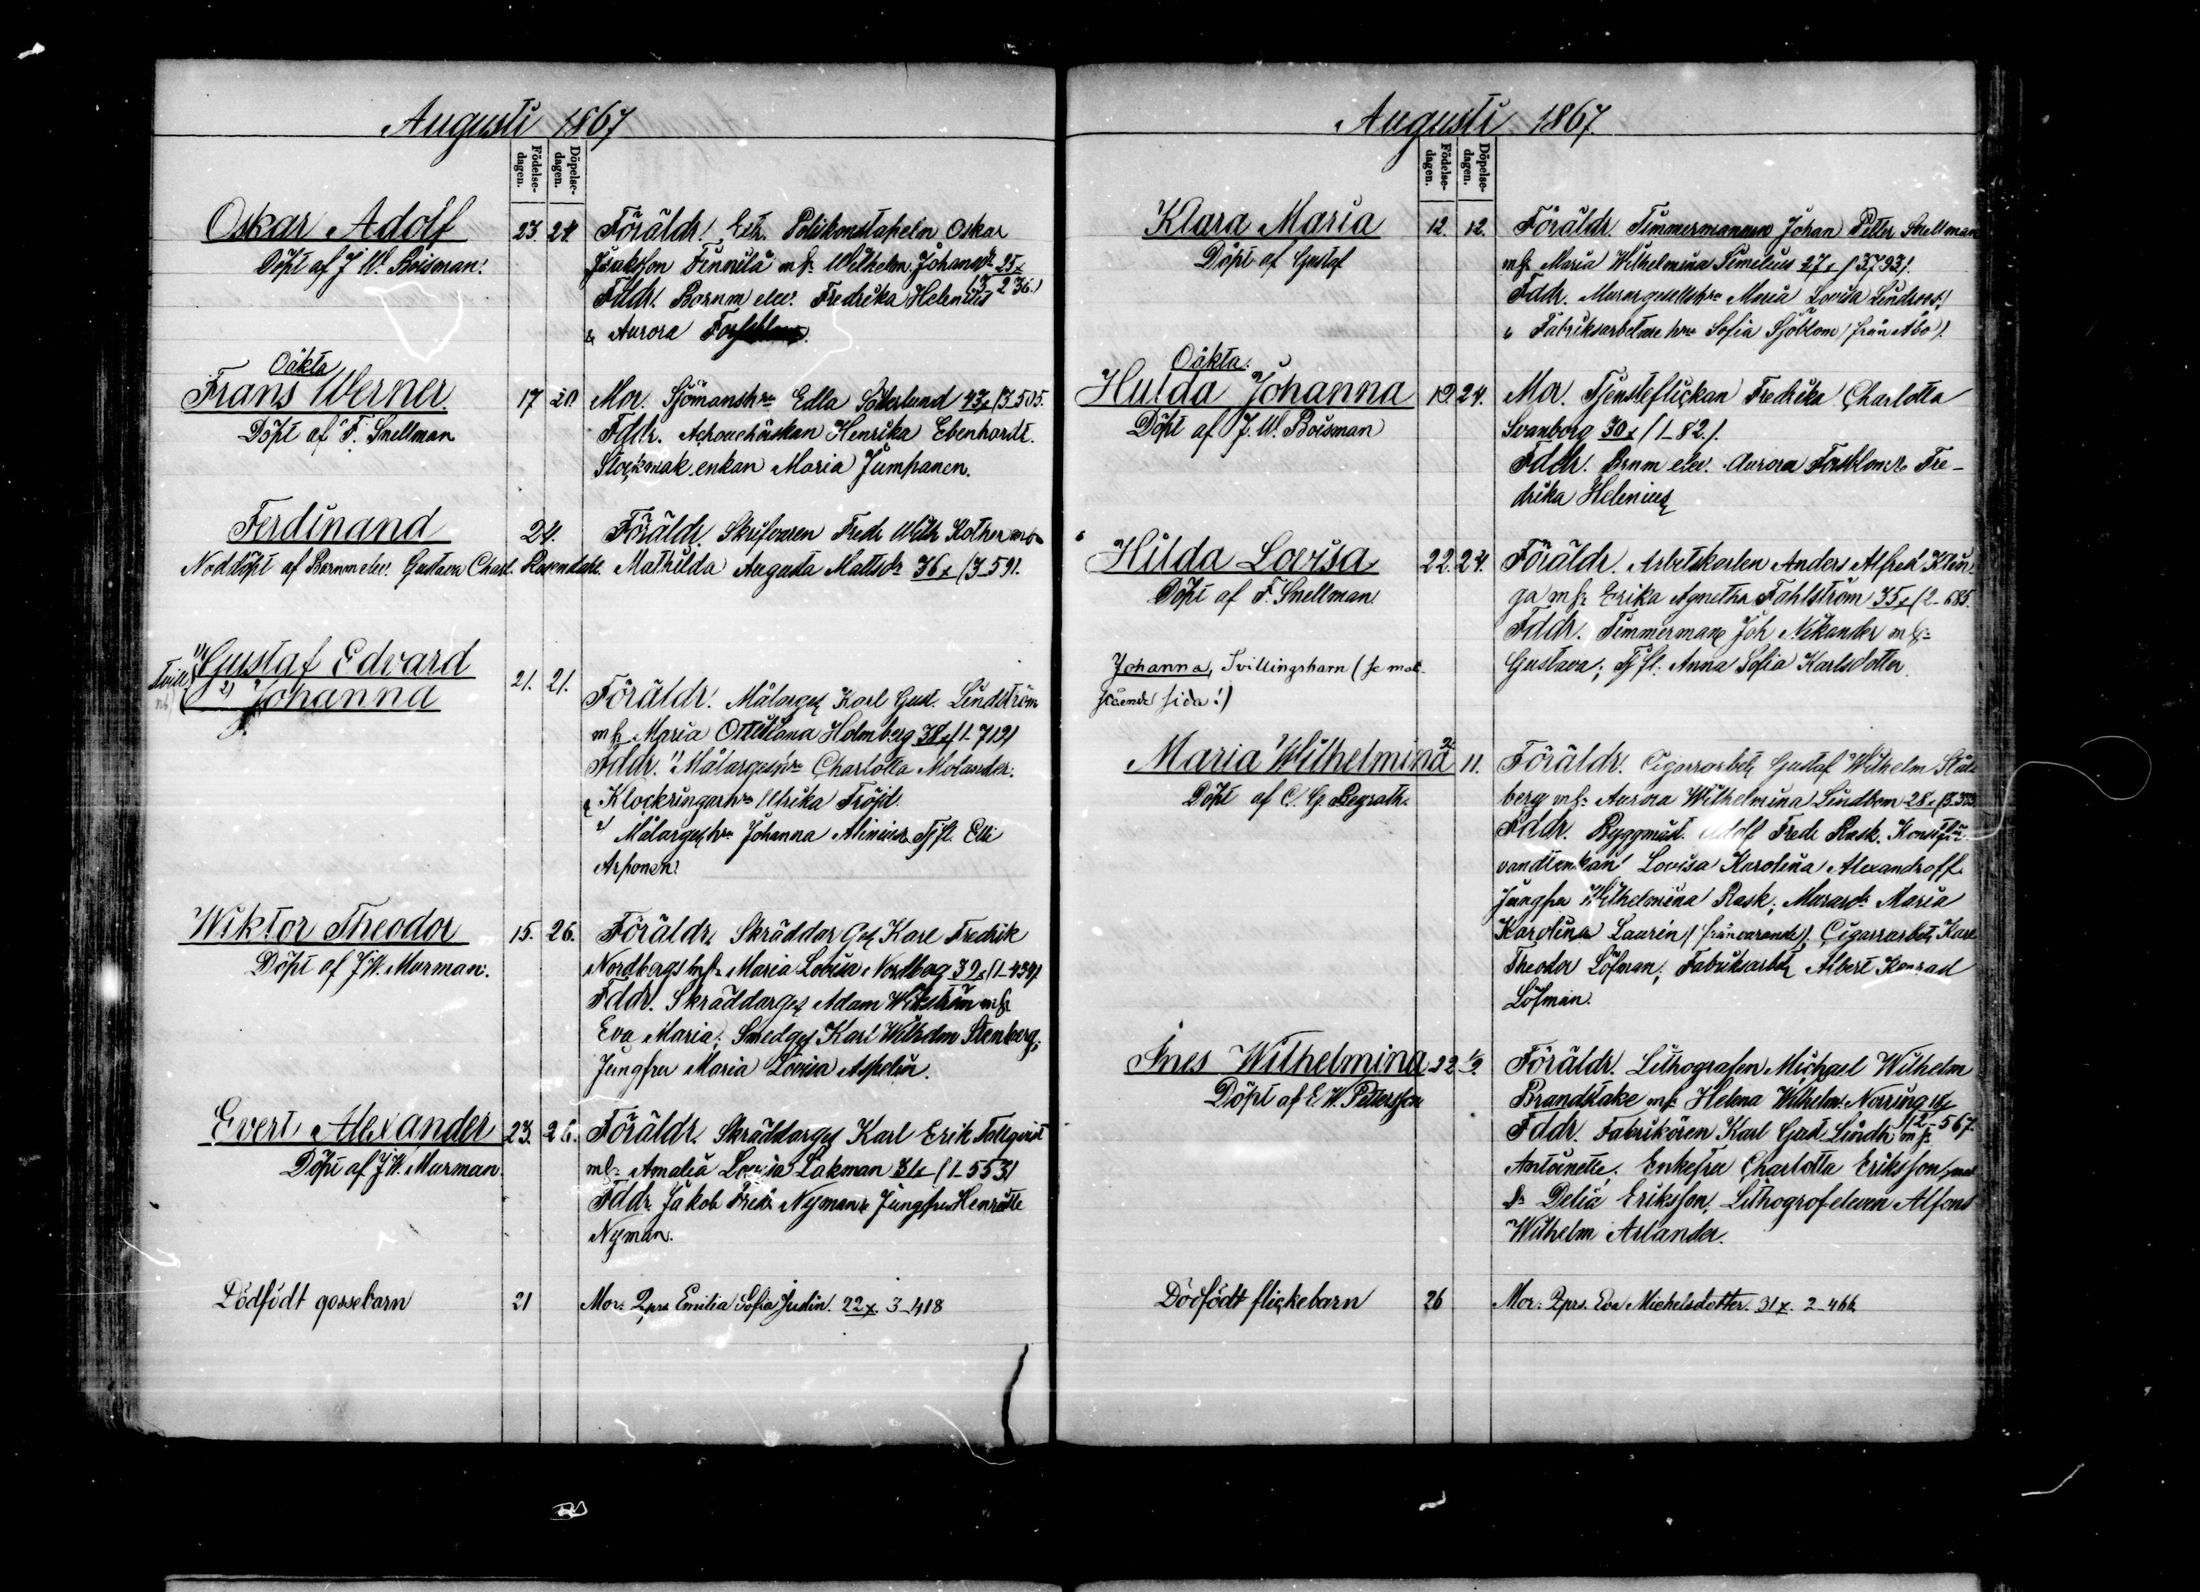 Augusti 1867
Födelse-dagen.
Döpelse-dagen.
Oskar Adolf 23. 24. Föräldr. Extr. Poliskonstapeln Oskar
Döpt af J. W. Boisman. Finnilä m h: Wilhelm. Johansdr 25 x
(3 236.)
Fddr. Barnm elev. Fredrika Helenius
& Aurora
Oäkta
Frans Werner. 17 20. Mor. Sjömanshru Edla Söderlund 43 x (3 505.
Döpt af F. Snellman Fddr. Henrika Ebenhardt.
enkan Maria Jumpanen.
Ferdinand 24. Föräldr. Skrifvaren Fredr. Wilh
Nöddöpt af Barnm elev. Gustava Charl. Rosendahl. Mathilda Augusta Mattsdr 36 x (3-591.
Tvill.
1) Gustaf Edvard
2) Johanna 21. 21. Föräldr. Målarges Karl Gust. Lindström
m h: Maria Holmberg 38 x (1-712)
Fddr. 1) Målargeshru Charlotta Molander.
& Klockringarhru Ulrika Fröjd.
2) Målargeshru Johanna Alinius & Tjfl. Elli
Arponen.
Wiktor Theodor 15. 26. Föräldr. Skräddar Ges Karl Fredrik
Döpt af J. W. Murman. Nordberg m h: Maria Lovisa Nordberg 39 x (1-439)
Fddr. Skräddarges Adam Wikström m h:
Eva Maria; Smedges Karl Wilhelm Stenberg;
Jungfru Maria Lovisa Aspelin.
Evert Alexander 23. 26. Föräldr. Skräddarges Karl Erik
Döpt af J. W. Murman. m h: Amalia Lovisa Lakman 31 x (1-553)
Fddr. Jakob Fredr. Nyman & Jungfru Henriette
Nyman.
Dödfödt gossebarn 21 Mor: Qprs Emilia Sofia Judin. 22 x. 3-418
Augusti 1867
Födelse-dagen.
Döpelse-dagen.
Klara Maria 12. 12. Föräldr. Timmermannen Johan Petter Snellman
Döpt af Gustaf m h: Maria Wilhelmina Similius 27 x (3793).
Fddr. Murargesellshru Maria Lovisa Lindroos;
& Fabriksarbetare hru Sofia Sjöblom (från Åbo).
Oäkta.
Hulda Johanna 19. 24. Mor. Tjensteflickan Fredrika Charlotta
Döpt af J. W. Boisman Svanborg 30 x (1-82.).
Fddr. Brnm elev. Aurora Forsblom & Fre-
drika Helenius
Hilda Lovisa 22. 24. Föräldr. Arbetskarlen Anders Alfred
Döpt af F. Snellman. ga m h: Erika Agnetha Fahlström 35 x (2-685.
Fddr. Timmerman Joh Nikander m h:
Johanna, Tvillingsbarn (se mot- Gustava; Tj fl. Anna Sofia Karlsdotter.
stående sida!)
Maria Wilhelmina 2 11. Föräldr. Cigarrarbet. Gustaf Wilhelm Stål-
Döpt af C. G. Begroth. berg m h: Aurora Wilhelmina Lindbom 28 x
Fddr. Byggmäst. Adolf Fredr. Rask.
Lovisa Karolina Alexandroff.
Jungfru Wilhelmina Rask; Murardr Maria
Karolina Laurin (frånvarande). Cigarrarbet. Karl
Theodor Löfman; Fabriksarbet Albert Konrad
Löfman.
Ines Wilhelmina 22 1/9. Föräldr. Lithografen Michael Wilhelm
Döpt af E. W. Pettersson Brandstake m h: Helena Wilhelm. Norring
(2-567.
Fddr. Fabrikören Karl Gust. Lindh m h:
Antoinette; Enkefru Charlotta Eriksson
Delia Eriksson, Lithografeleven Alfons
Wilhelm Arlander.
Dödfödt flickebarn 26 Mor: Qprs. Eva Michelsdotter. 31 x. 2-466